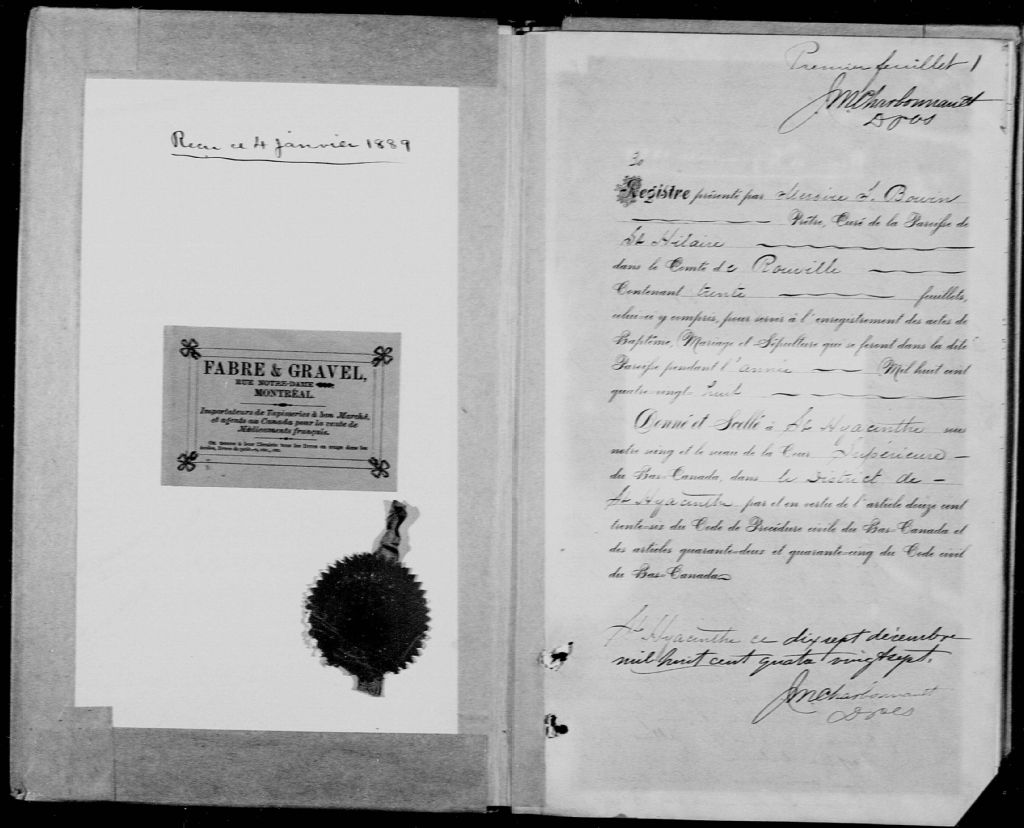 Recu ce 4 janvier 1889
FABRE & GRAVEL,
RUE NOTRE-DAME
MONTRÉAL.
Importateurs de Tapisseries à bon Marché,
et agents au Canada pour la vente de
Médicaments français.
On trouve à leur Librairie tous les livres en usage dans les
écoles, livres de prières, etc., etc.
Premier feuillet 1
JMCharbonneault
30
Registre présenté par Messire
Prêtre, Curé de la Paroisse de
St Hilaire
dans le Comté de Rouville
Contenant trente feuillets,
celui-ci y compris, pour servir à l'enregistrement des actes de
Baptême, Mariage et Sépulture qui se feront dans la dite
Paroisse pendant l'année Mil huit cent
quatre-vingt huit
Donné et Scellé à St Hyacinthe sous
notre seing et le sceau de la Cour Supérieure
du Bas-Canada, dans le District de
St Hyacinthe par et en vertu de l'article douze cent
trente-six du Code de Procédure civile du Bas-Canada et
des articles quarante-deux et quarante-cinq du Code civil
du Bas-Canada
St Hyacinthe ce dix sept décembre
mil huit cent quatre vingt sept.
JMCharbonneault